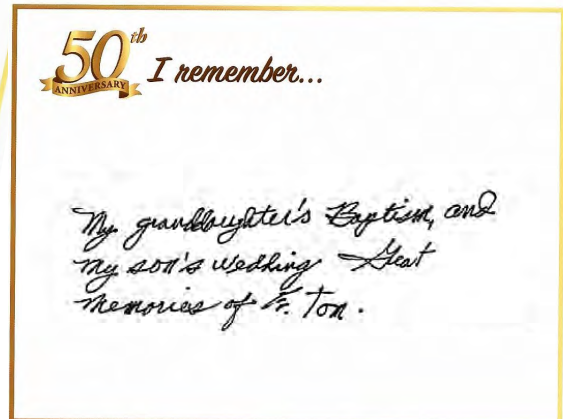 50th
ANNIVERSARY
I remember...
My granddaughter's Baptism, and
my son's wedding. Great
memories of Fr. Tom.